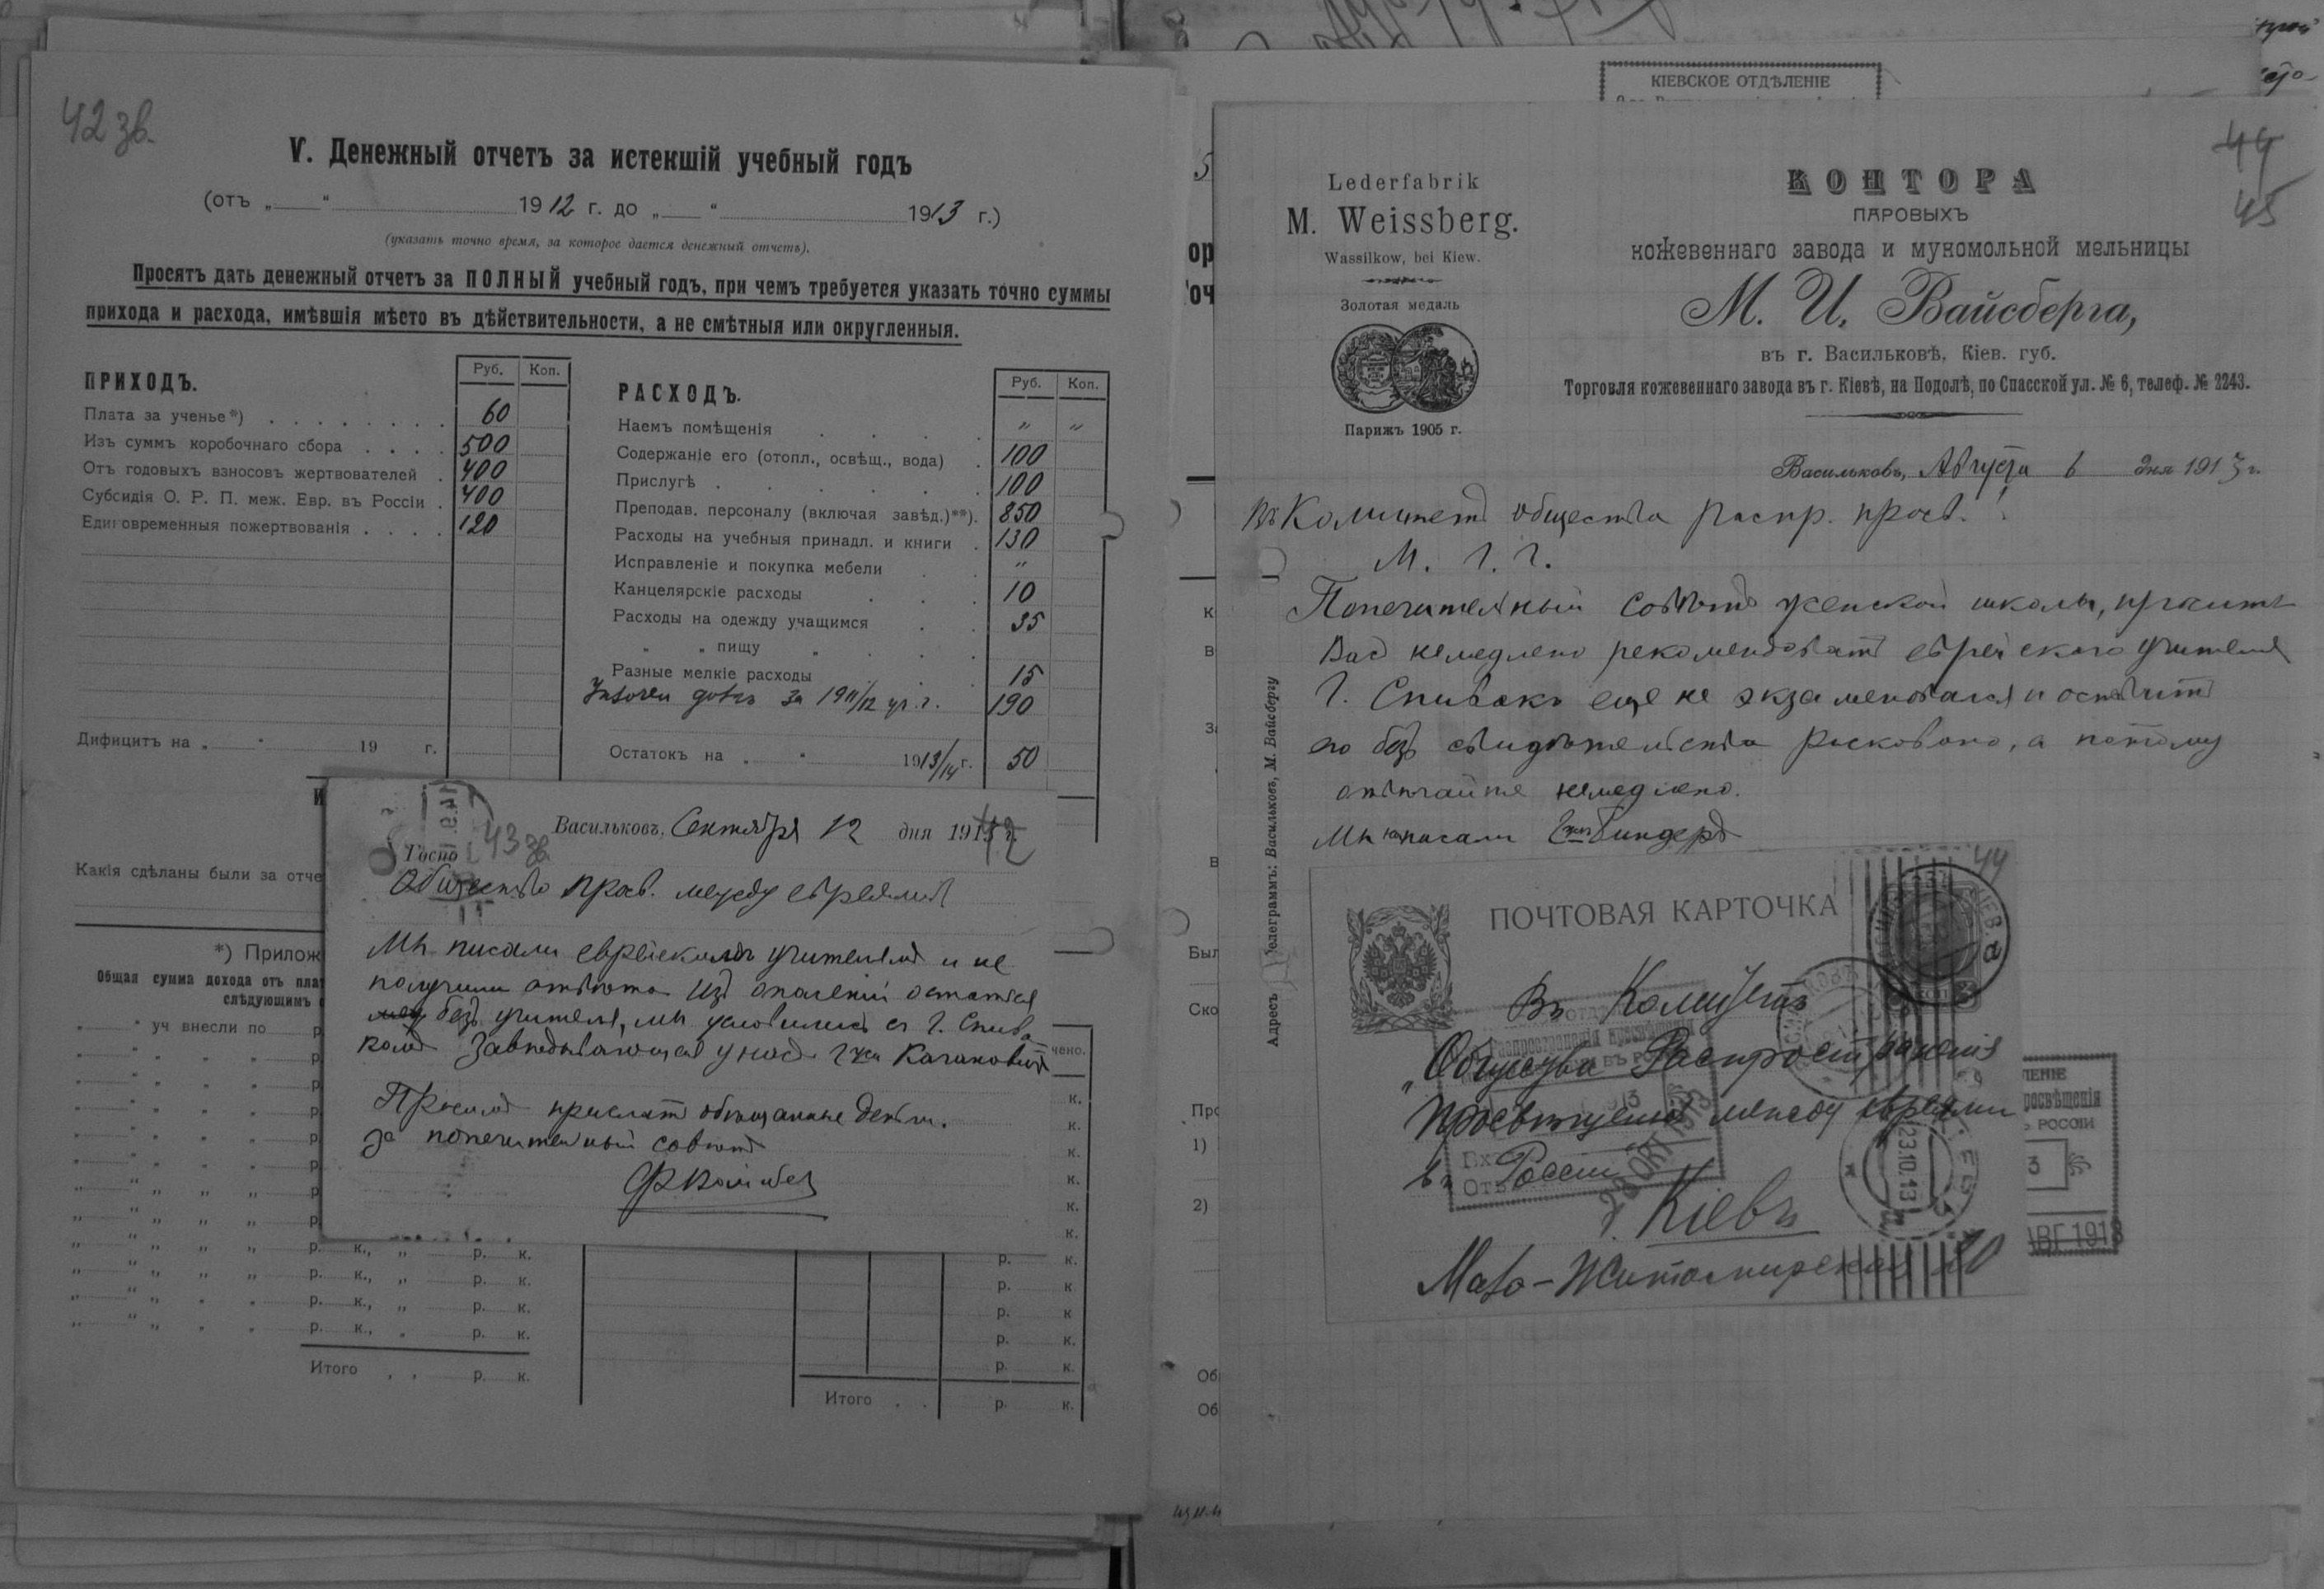 42 зв.
V. Денежный отчетъ за истекшій учебный годъ
(отъ „ “ 1912 г. до „ “ 1913 г.)
(указать точно время, за которое дается денежный отчетъ).
Просятъ дать денежный отчетъ за ПОЛНЫЙ учебный годъ, при чемъ требуется указать точно суммы
прихода и расхода, имѣвшія мѣсто въ дѣйствительности, а не смѣтныя или округленныя.
ПРИХОДЪ. Руб. Коп.
Плата за ученье*) 60
Изъ суммъ коробочнаго сбора 500
Отъ годовыхъ взносовъ жертвователей 400
Субсидія О. Р. П. меж. Евр. въ Россіи 400
Единовременныя пожертвованія 120
Дифицитъ на „ “ 19 г.
РАСХОДЪ. Руб. Коп.
Наемъ помѣщенія „ „
Содержаніе его (отопл., освѣщ., вода) 100
Прислугѣ 100
Преподав. персоналу (включая завѣд.)**). 850
Расходы на учебныя принадл. и книги 130
Исправленіе и покупка мебели „
Канцелярскіе расходы 10
Расходы на одежду учащимся 35
„ „ пищу „
Разные мелкіе расходы 15
за 1911/12 уч. г. 190
Остатокъ на „ “ 1913/14 г. 50
Какія сдѣланы были за отче
*) Прилож
Общая сумма дохода отъ плат
слѣдующимъ
„ “ уч внесли по р
чено.
р. к., „ р. к.
р. к., „ р. к.
р. к., „ р. к.
р. к., „ р. к.
Итого р. к.
Итого р. к.
43 зв.
Васильковъ, Сентября 12 дня 191
Госпо
Общество просв. между евреями
Мы писали еврейскимъ учителямъ и не
получили отвѣта Изъ опасеній остаться
безъ учителя, мы условились съ Г. Спива
комъ Завѣдывающая у насъ г-жа Каганович
Просимъ прислать обѣщанные деньги.
За попечительный совѣтъ
КІЕВСКОЕ ОТДѢЛЕНІЕ
44
45
Lederfabrik
M. Weissberg.
Wassilkow, bei Kiew.
Золотая медаль
Парижъ 1905 г.
КОНТОРА
ПАРОВЫХЪ
кожевеннаго завода и мукомольной мельницы
М. И. Вайсберга,
въ г. Васильковѣ, Кіев. губ.
Торговля кожевеннаго завода въ г. Кіевѣ, на Подолѣ, по Спасской ул. № 6, телеф. № 2243.
Васильковъ, Августа 6 дня 1913 г.
Въ Комитетъ общества распр. просв.!
М. Г. Г.
Попечительный совѣтъ женской школы, проситъ
Васъ немедлено рекомендовать еврейскаго учителя
Г. Спивакъ еще не экзаменовался и оставить
его безъ свидѣтельства рисковано, а потому
отвѣчайте немедлено.
Мы написали Биндеръ
Адресъ телеграммъ: Васильковъ, М. Вайсбергу
44
ПОЧТОВАЯ КАРТОЧКА
Въ Комитетъ
„Общества Распространенія
Просвѣщенія между евреями
въ Россіи
г. Кіевъ
Мало-Житомирская 20
23.10.13
ЛЕНІЕ
росвѣщенія
РОССІИ
3
АВГ 1913